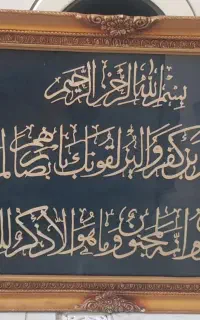 بسم الله الرحمن الرحيم
كفروا ليزلقونك بأبصارهم لما
إنه لمجنون وما هو إلا ذكر